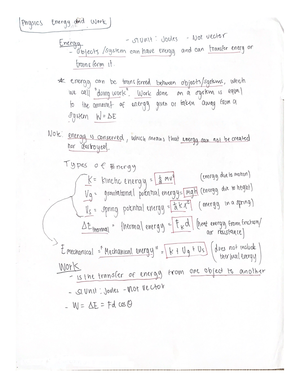 Physics Energy and Work
Energy - SI Unit: Joules - Not vector
- objects/system can have energy and can transfer energy or
transform it.
* energy can be transferred between objects/systems, which
we call "doing work". Work done on a system is equal
to the amount of energy given or taken away from a
system W = ΔE
Note: energy is conserved, which means that energy can not be created
or destroyed.
Types of Energy
K = kinetic energy = ½mv² (energy due to motion)
Ug = gravitational potential energy = mgh (energy due to height)
Us = spring potential energy = ½kx² (energy in a spring)
ΔE thermal = thermal energy = Fk d (heat energy from friction/
air resistance)
E mechanical = "Mechanical energy" = K + Ug + Us (does not include
thermal energy)
Work
- is the transfer of energy from one object to another
- SI Unit: Joules - Not vector
- W = ΔE = Fd cosθ